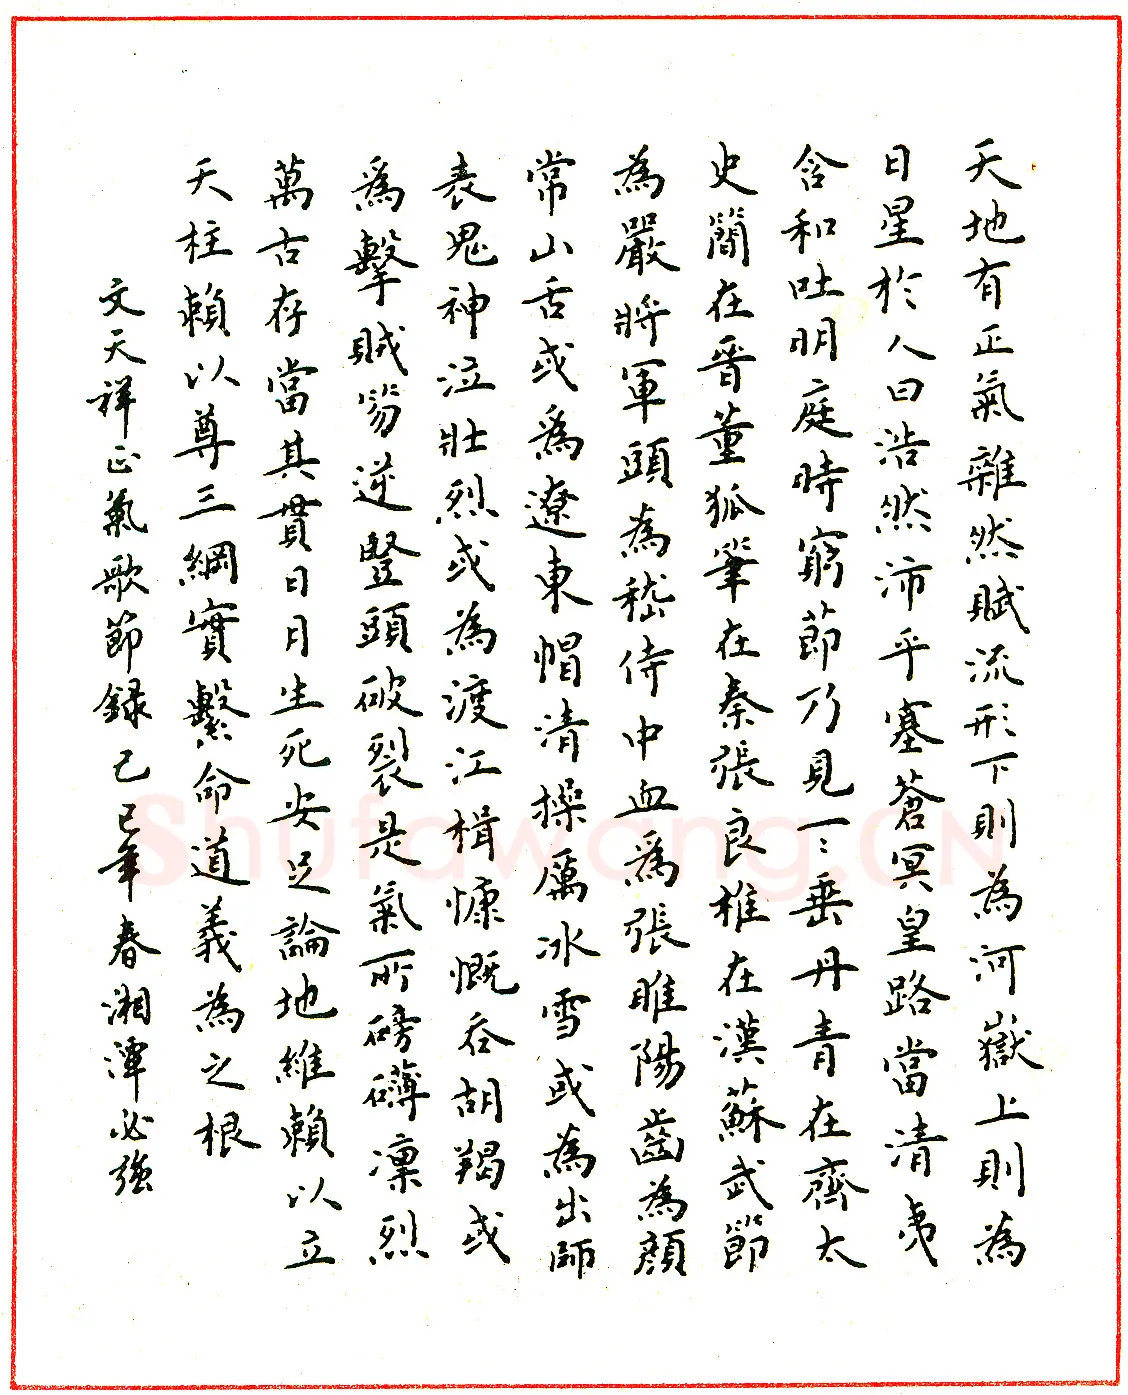 天地有正氣雜然賦流形下則為河嶽上則為
日星於人曰浩然沛乎塞蒼冥皇路當清夷
含和吐明庭時窮節乃見一〻垂丹青在齊太
史簡在晉董狐筆在秦張良椎在漢蘇武節
為嚴將軍頭為嵇侍中血為張睢陽齒為顏
常山舌或為遼東帽清操厲冰雪或為出師
表鬼神泣壯烈或為渡江楫慷慨吞胡羯或
為擊賊笏逆豎頭破裂是氣所磅礴凜烈
萬古存當其貫日月生死安足論地維賴以立
天柱賴以尊三綱實繫命道義為之根
文天祥正氣歌節録己巳年春湘潭必強
Shufawang.CN